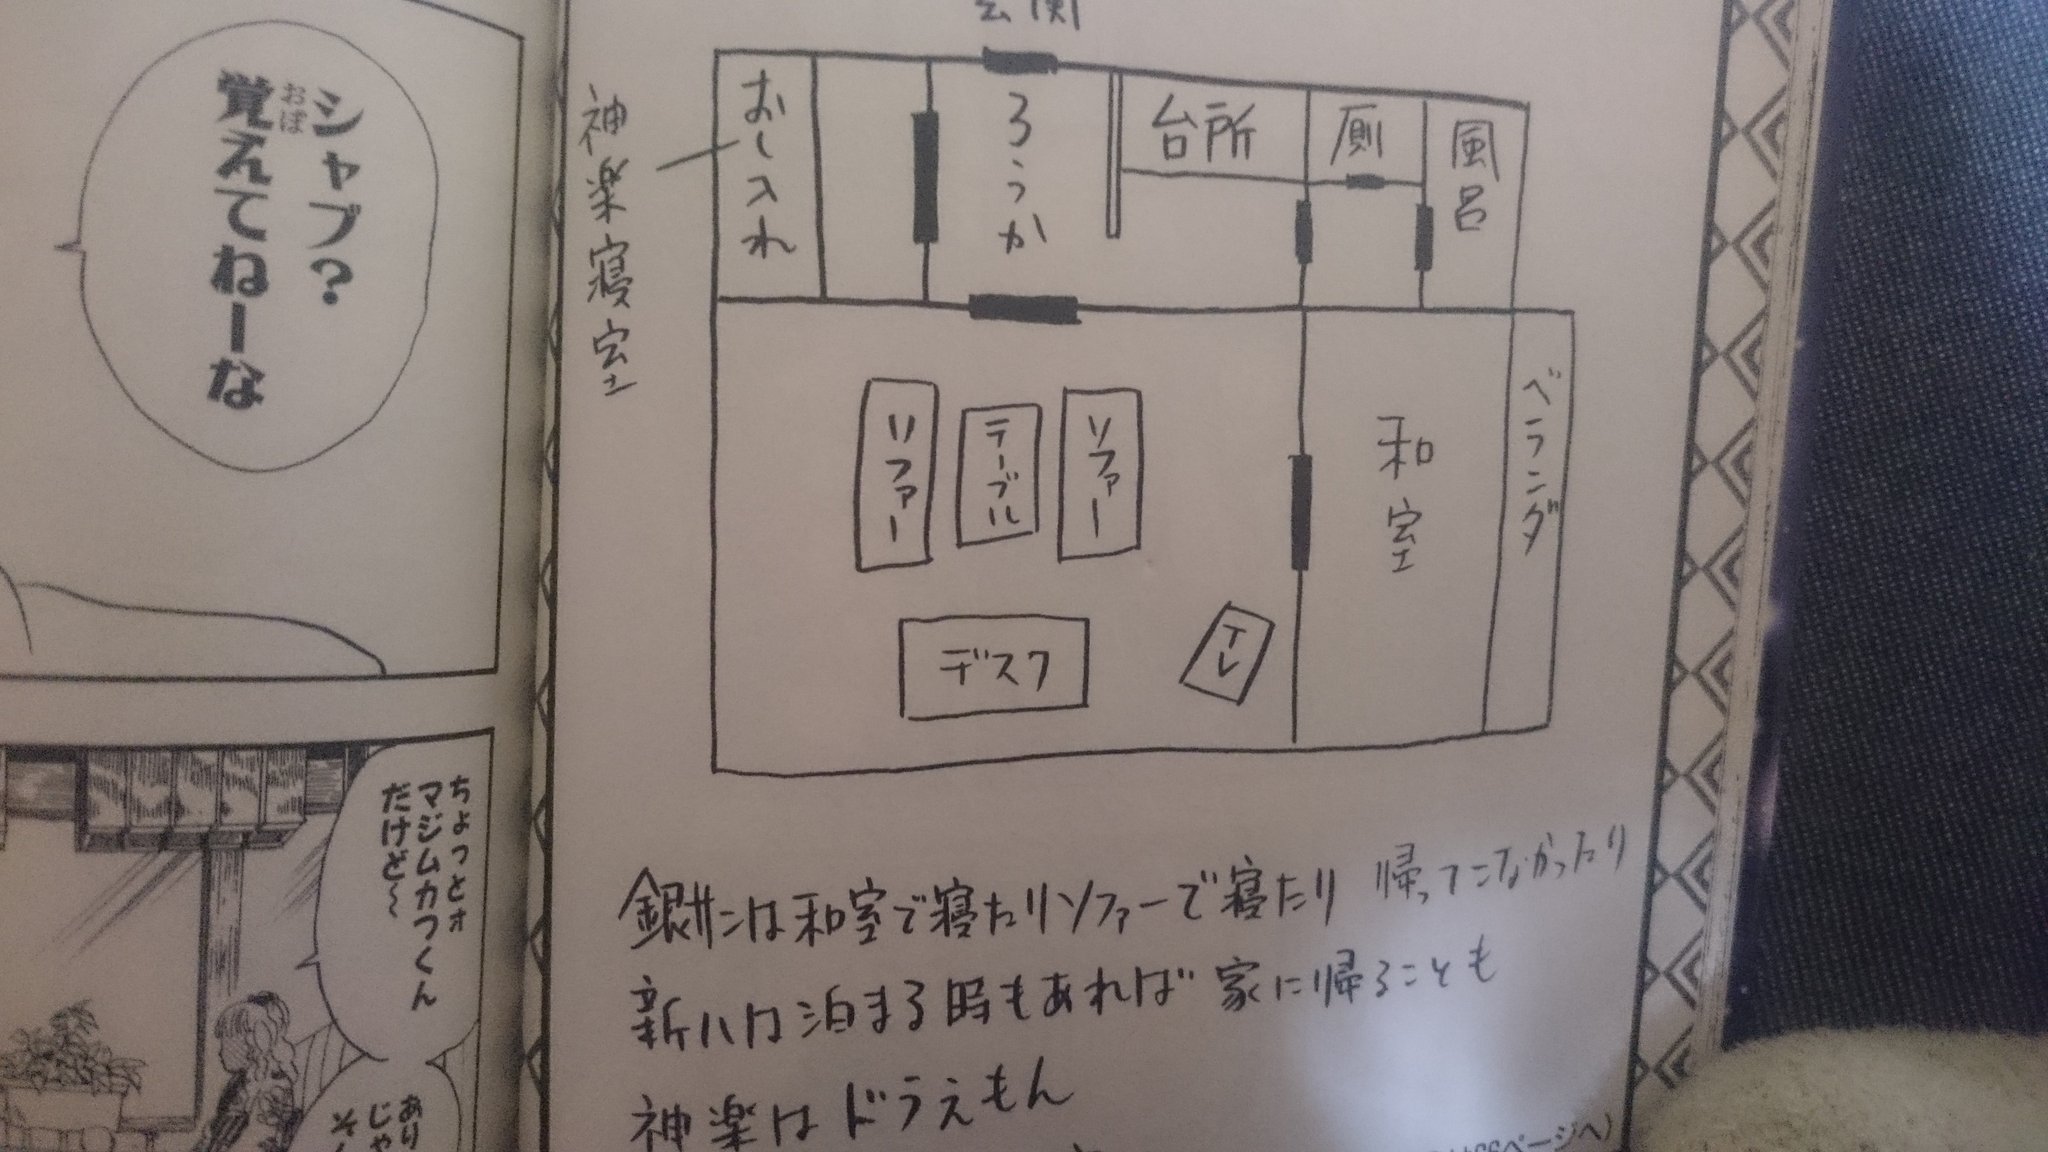 シャブ?
覚えてねーな
おぼ
ちょっとォ
マジムカつくん
だけど〜
あり
じゃ
玄関
神楽寝室
おし入れ
ろうか
台所
厠
風呂
ソファー
テーブル
ソファー
和室
ベランダ
デスク
テレ
銀サンは和室で寝たりソファーで寝たり 帰ってこなかったり
新八は泊まる時もあれば家に帰ることも
神楽はドラえもん
ページへ)